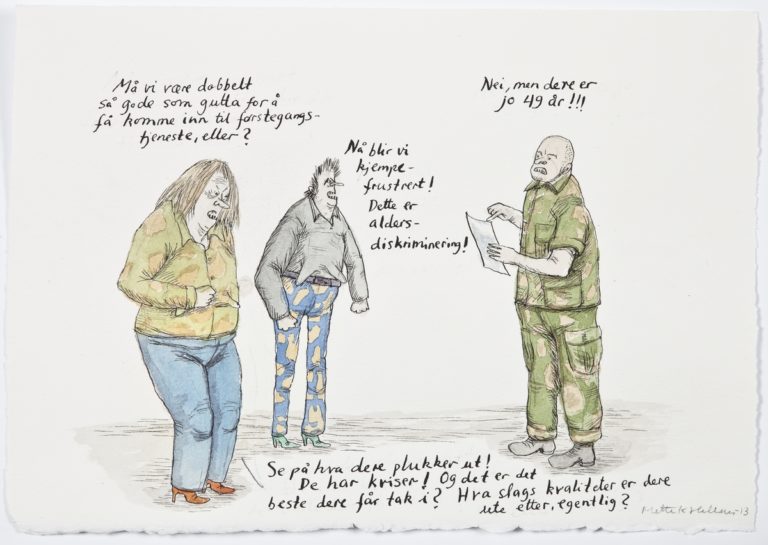 Må vi være dobbelt
så gode som gutta for å
få komme inn til førstegangs-
tjeneste, eller?
Nei, men dere er
jo 49 år!!!
Nå blir vi
kjempe-
frustrert!
Dette er
alders-
diskriminering!
Se på hva dere plukker ut!
De har kriser! Og det er det
beste dere får tak i? Hva slags kvaliteter er dere
ute etter, egentlig?
Mette K Hellenes 13